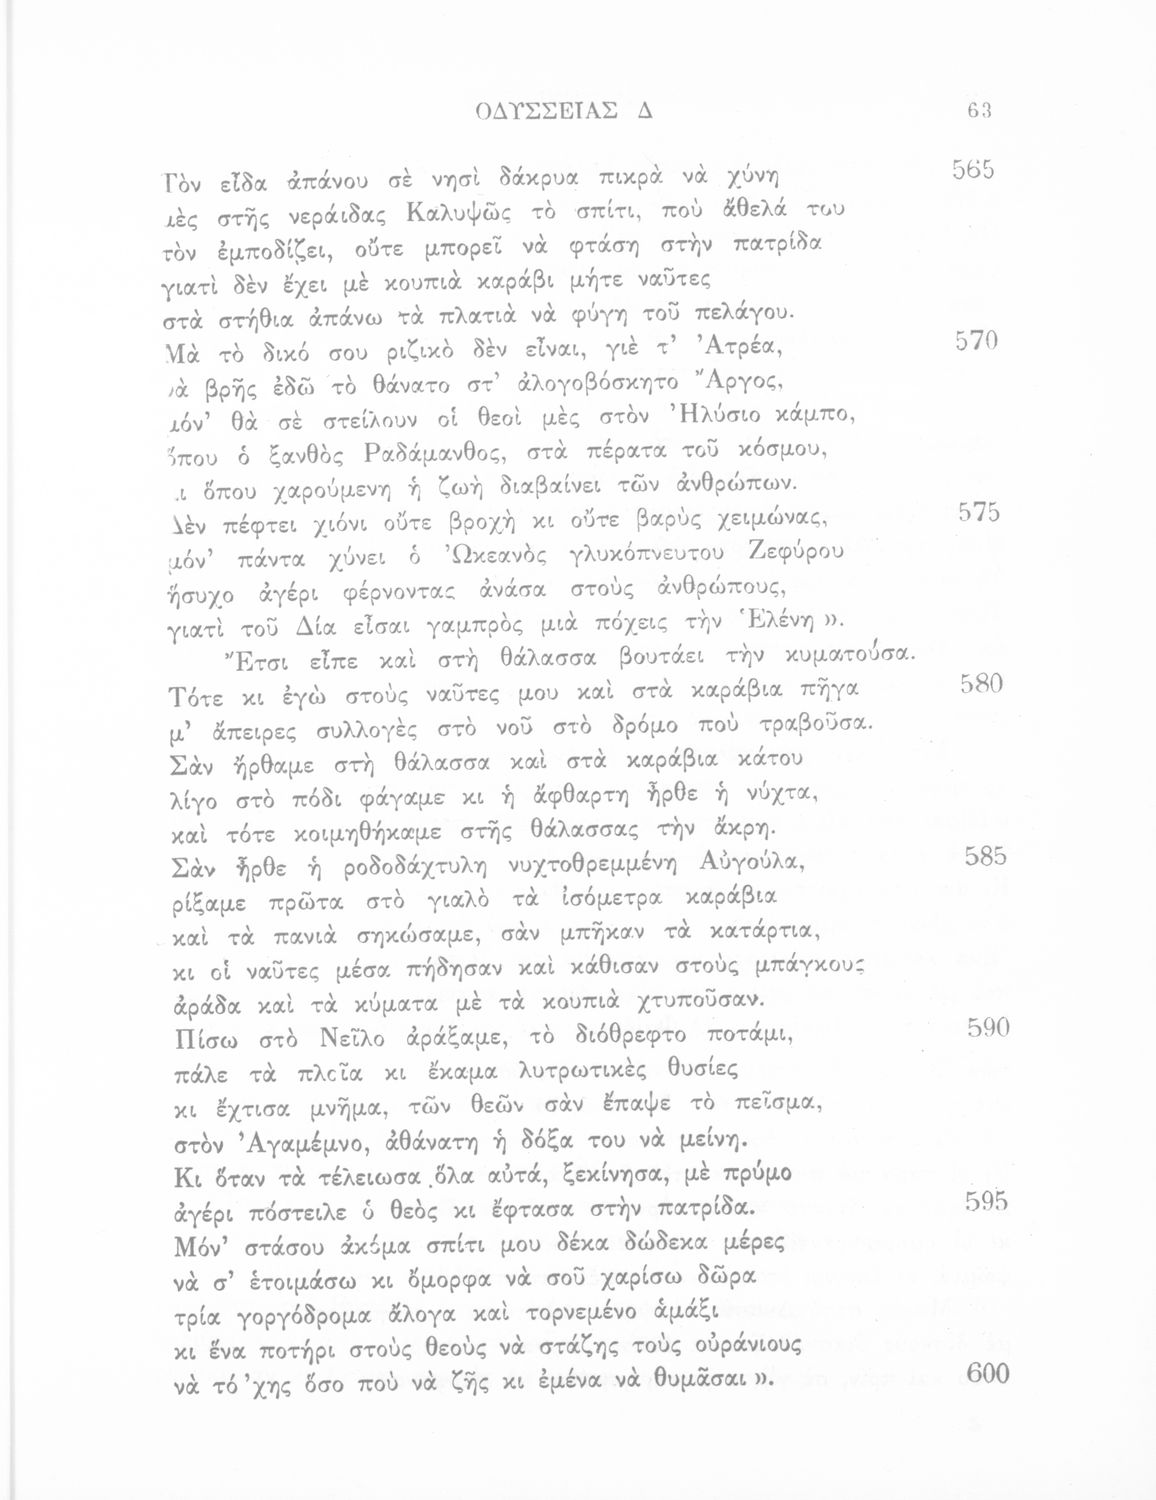 ΟΔΥΣΣΕΙΑΣ Δ 63
Τὸν εἶδα ἀπάνου σὲ νησὶ δάκρυα πικρὰ νὰ χύνη 565
μὲς στῆς νεράιδας Καλυψῶς τὸ σπίτι, ποὺ ἄθελά του
τὸν ἐμποδίζει, οὔτε μπορεῖ νὰ φτάση στὴν πατρίδα
γιατὶ δὲν ἔχει μὲ κουπιὰ καράβι μήτε ναῦτες
στὰ στήθια ἀπάνω τὰ πλατιὰ νὰ φύγη τοῦ πελάγου.
Μὰ τὸ δικό σου ριζικὸ δὲν εἶναι, γιὲ τ’ Ἀτρέα, 570
νὰ βρῆς ἐδῶ τὸ θάνατο στ’ ἀλογοβόσκητο Ἄργος,
μόν’ θὰ σὲ στείλουν οἱ θεοὶ μὲς στὸν Ἠλύσιο κάμπο,
ὅπου ὁ ξανθὸς Ραδάμανθος, στὰ πέρατα τοῦ κόσμου,
κι ὅπου χαρούμενη ἡ ζωὴ διαβαίνει τῶν ἀνθρώπων.
Δὲν πέφτει χιόνι οὔτε βροχὴ κι οὔτε βαρὺς χειμώνας, 575
μόν’ πάντα χύνει ὁ Ὠκεανὸς γλυκόπνευτου Ζεφύρου
ἥσυχο ἀγέρι φέρνοντας ἀνάσα στοὺς ἀνθρώπους,
γιατὶ τοῦ Δία εἶσαι γαμπρὸς μιὰ πόχεις τὴν Ἑλένη ».
Ἔτσι εἶπε καὶ στὴ θάλασσα βουτάει τὴν κυματούσα.
Τότε κι ἐγὼ στοὺς ναῦτες μου καὶ στὰ καράβια πῆγα 580
μ’ ἄπειρες συλλογὲς στὸ νοῦ στὸ δρόμο ποὺ τραβοῦσα.
Σὰν ἤρθαμε στὴ θάλασσα καὶ στὰ καράβια κάτου
λίγο στὸ πόδι φάγαμε κι ἡ ἄφθαρτη ἦρθε ἡ νύχτα,
καὶ τότε κοιμηθήκαμε στῆς θάλασσας τὴν ἄκρη.
Σὰν ἦρθε ἡ ροδοδάχτυλη νυχτοθρεμμένη Αὐγούλα, 585
ρίξαμε πρῶτα στὸ γιαλὸ τὰ ἰσόμετρα καράβια
καὶ τὰ πανιὰ σηκώσαμε, σὰν μπῆκαν τὰ κατάρτια,
κι οἱ ναῦτες μέσα πήδησαν καὶ κάθισαν στοὺς μπάγκους
ἀράδα καὶ τὰ κύματα μὲ τὰ κουπιὰ χτυποῦσαν.
Πίσω στὸ Νεῖλο ἀράξαμε, τὸ διόθρεφτο ποτάμι, 590
πάλε τὰ πλοῖα κι ἔκαμα λυτρωτικὲς θυσίες
κι ἔχτισα μνῆμα, τῶν θεῶν σὰν ἔπαψε τὸ πεῖσμα,
στὸν Ἀγαμέμνο, ἀθάνατη ἡ δόξα του νὰ μείνη.
Κι ὅταν τὰ τέλειωσα ὅλα αὐτά, ξεκίνησα, μὲ πρύμο
ἀγέρι πόστειλε ὁ θεὸς κι ἔφτασα στὴν πατρίδα. 595
Μόν’ στάσου ἀκόμα σπίτι μου δέκα δώδεκα μέρες
νὰ σ’ ἑτοιμάσω κι ὄμορφα νὰ σοῦ χαρίσω δῶρα
τρία γοργόδρομα ἄλογα καὶ τορνεμένο ἁμάξι
κι ἕνα ποτήρι στοὺς θεοὺς νὰ στάζης τοὺς οὐράνιους
νὰ τό ’χης ὅσο ποὺ νὰ ζῆς κι ἐμένα νὰ θυμᾶσαι ». 600